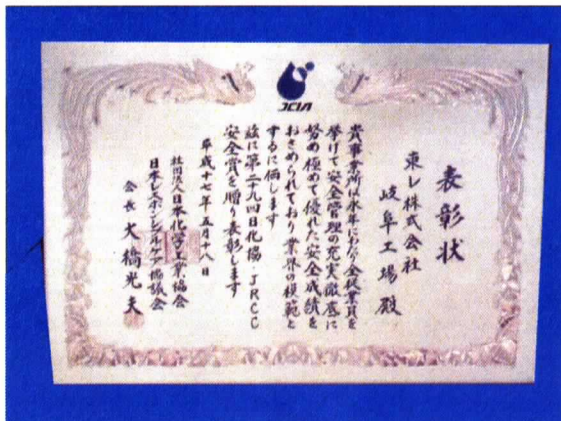 JCIA
表彰状
東レ株式会社
岐阜工場殿
貴事業所は永年にわたり全従業員を
挙げて安全管理の充実徹底に
努め極めて優れた安全成績を
おさめられており業界の模範と
するに価します
茲に第二十九回日化協・JRCC
安全賞を贈り表彰します
平成十七年五月十八日
社団法人日本化学工業協会
日本レスポンシブル・ケア協議会
会長 大橋光夫